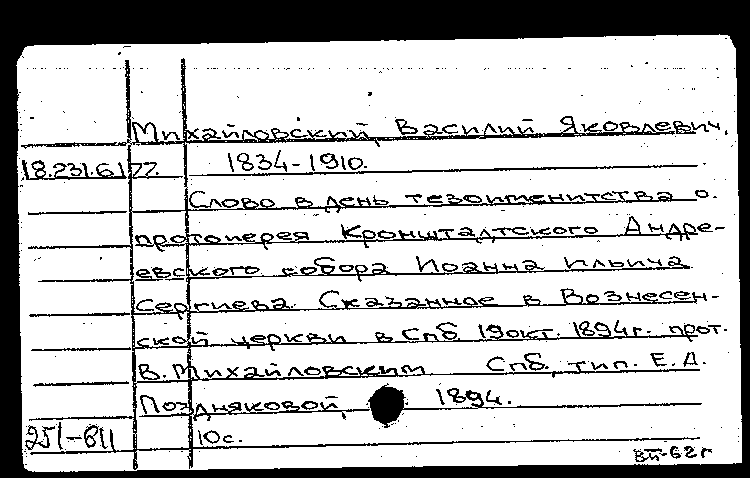 Михайловский, Василий Яковлевич,
18.231.6.177. 1834-1910.
Слово в день тезоименитства о.
протоиерея Кронштадтского Андре-
евского собора Иоанна Ильича
Сергиева. Сказанное в Вознесен-
ской церкви в Спб. 19 окт. 1894г. прот.
В. Михайловским Спб., тип. Е.Д.
Поздняковой, 1894.
251-811 10с.
ВП-62г